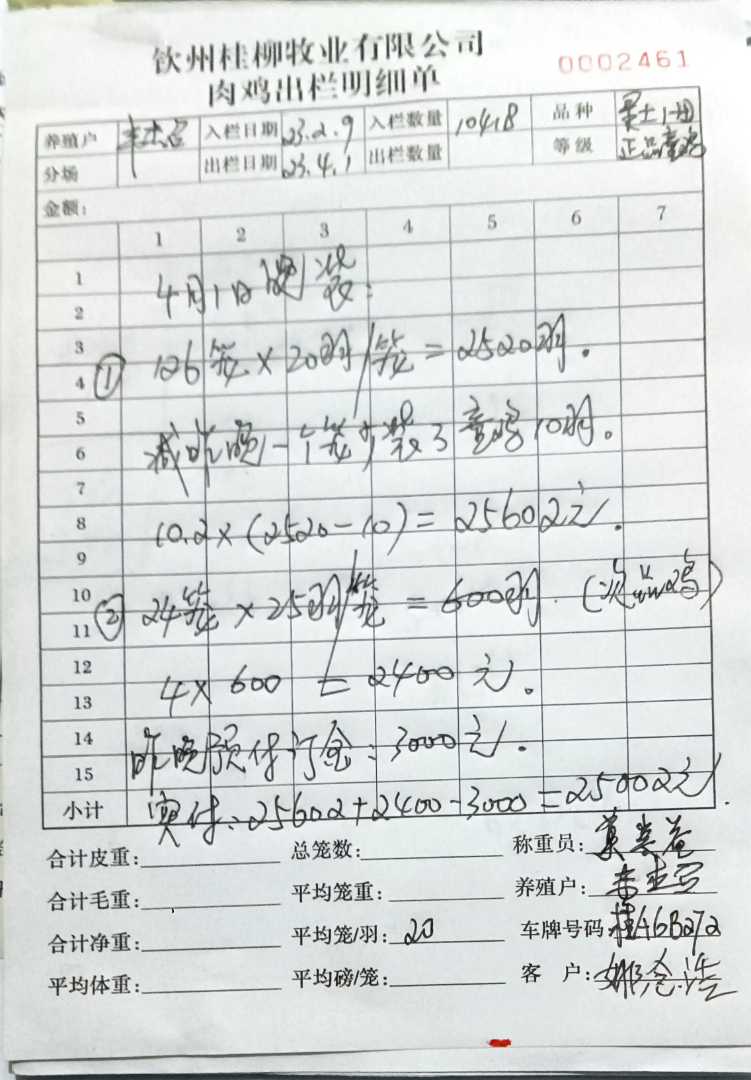 钦州桂柳牧业有限公司
0002461
肉鸡出栏明细单
养殖户 入栏日期 23.2.9 入栏数量 10418 品种
分场 出栏日期 23.4.1 出栏数量 等级 正品
金额:
1 2 3 4 5 6 7
1
4月1日 装:
2
3
① 126笼×20羽/笼=2520羽.
4
5
减昨晚一个笼少装了 鸡10羽。
6
7
8 10.2×(2520-10)=25602元.
9
10
② 24笼×25羽/笼=600羽.(次 鸡)
11
12
4×600=2400元.
13
14 昨晚预付订金:3000元.
15
小计 实付:25602+2400-3000=25002元.
合计皮重: 总笼数: 称重员:
合计毛重: 平均笼重: 养殖户:
合计净重: 平均笼/羽: 20 车牌号码: 桂A6B272
平均体重: 平均磅/笼: 客户: